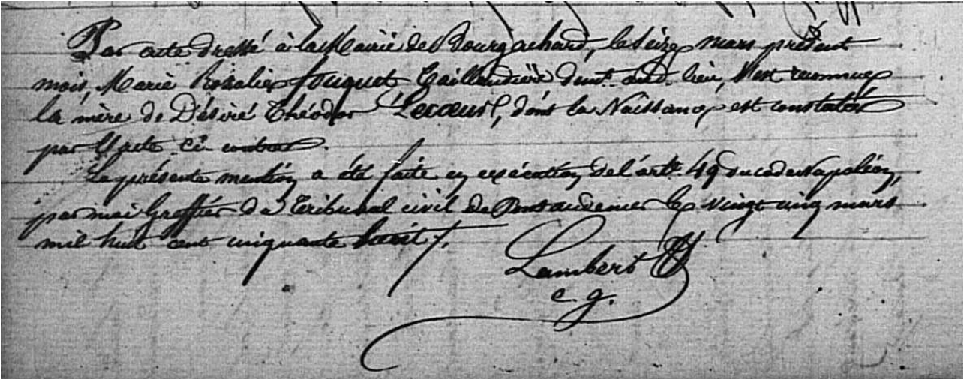 Par acte dressé à la Mairie de Bourgachard, le seize mars présent
mois, Marie Rosalie fouquet Taillandière audit lieu, s'est reconnue
la mère de Désiré Théodor Lecoeur, dont la Naissance est constatée
par l'acte ci contre.
La présente mention a été faite en exécution de l'art. 49 du code Napoléon,
par moi Greffier du Tribunal civil de Pontaudemer le vingt cinq mars
mil huit cent cinquante huit.
Lambert
c. g.